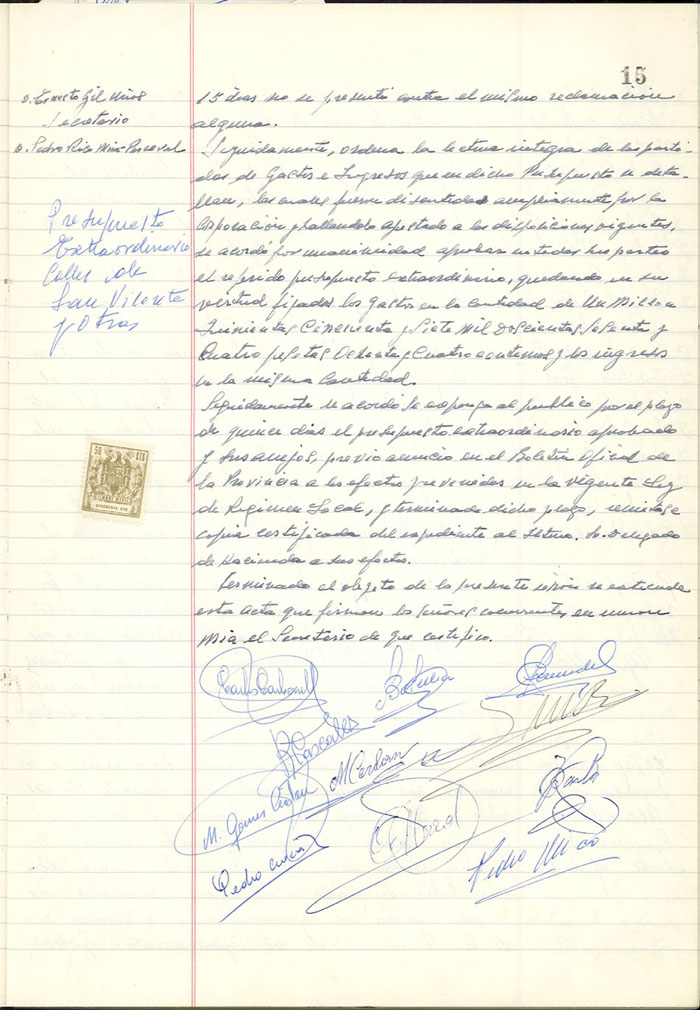 15
D. Ernesto Gil
Secretario
D. Pedro Rico
Presupuesto
Extraordinario
Calles de
San Vicente
y Otras
50 CTS
15 dias no se presentó contra el mismo reclamación
alguna.
Seguidamente, ordena la lectura integra de las parti
das de Gastos e Ingresos que en dicho Presupuesto se deta-
llan, las cuales fueron discutidas ampliamente por la
Corporación y hallandolo ajustado a las disposiciones vigentes,
se acordó por unanimidad aprobar en todas sus partes
el referido presupuesto extraordinario, quedando en su
virtud fijados los gastos en la Cantidad de Un Millon
Quinientas Cincuenta y Siete Mil Doscientas Sesenta y
Cuatro pesetas Ochenta y Cuatro centimos y los ingresos
en la misma Cantidad.
Seguidamente se acordó se exponga al publico por el plazo
de quince dias el presupuesto extraordinario aprobado
y sus anejos, previo anuncio en el Boletin Oficial de
la Provincia a los efectos prevenidos en la vigente Ley
de Regimen Local, y terminado dicho plazo, remitase
copia certificada del expediente al Iltmo. Sr. Delegado
de Hacienda a sus efectos.
Terminado el objeto de la presente sesión se extiende
esta acta que firman los señores concurrentes en union
Mia el Secretario de que certifico.
M. Cerdan
M. Gomis
Pedro
Pedro Mico